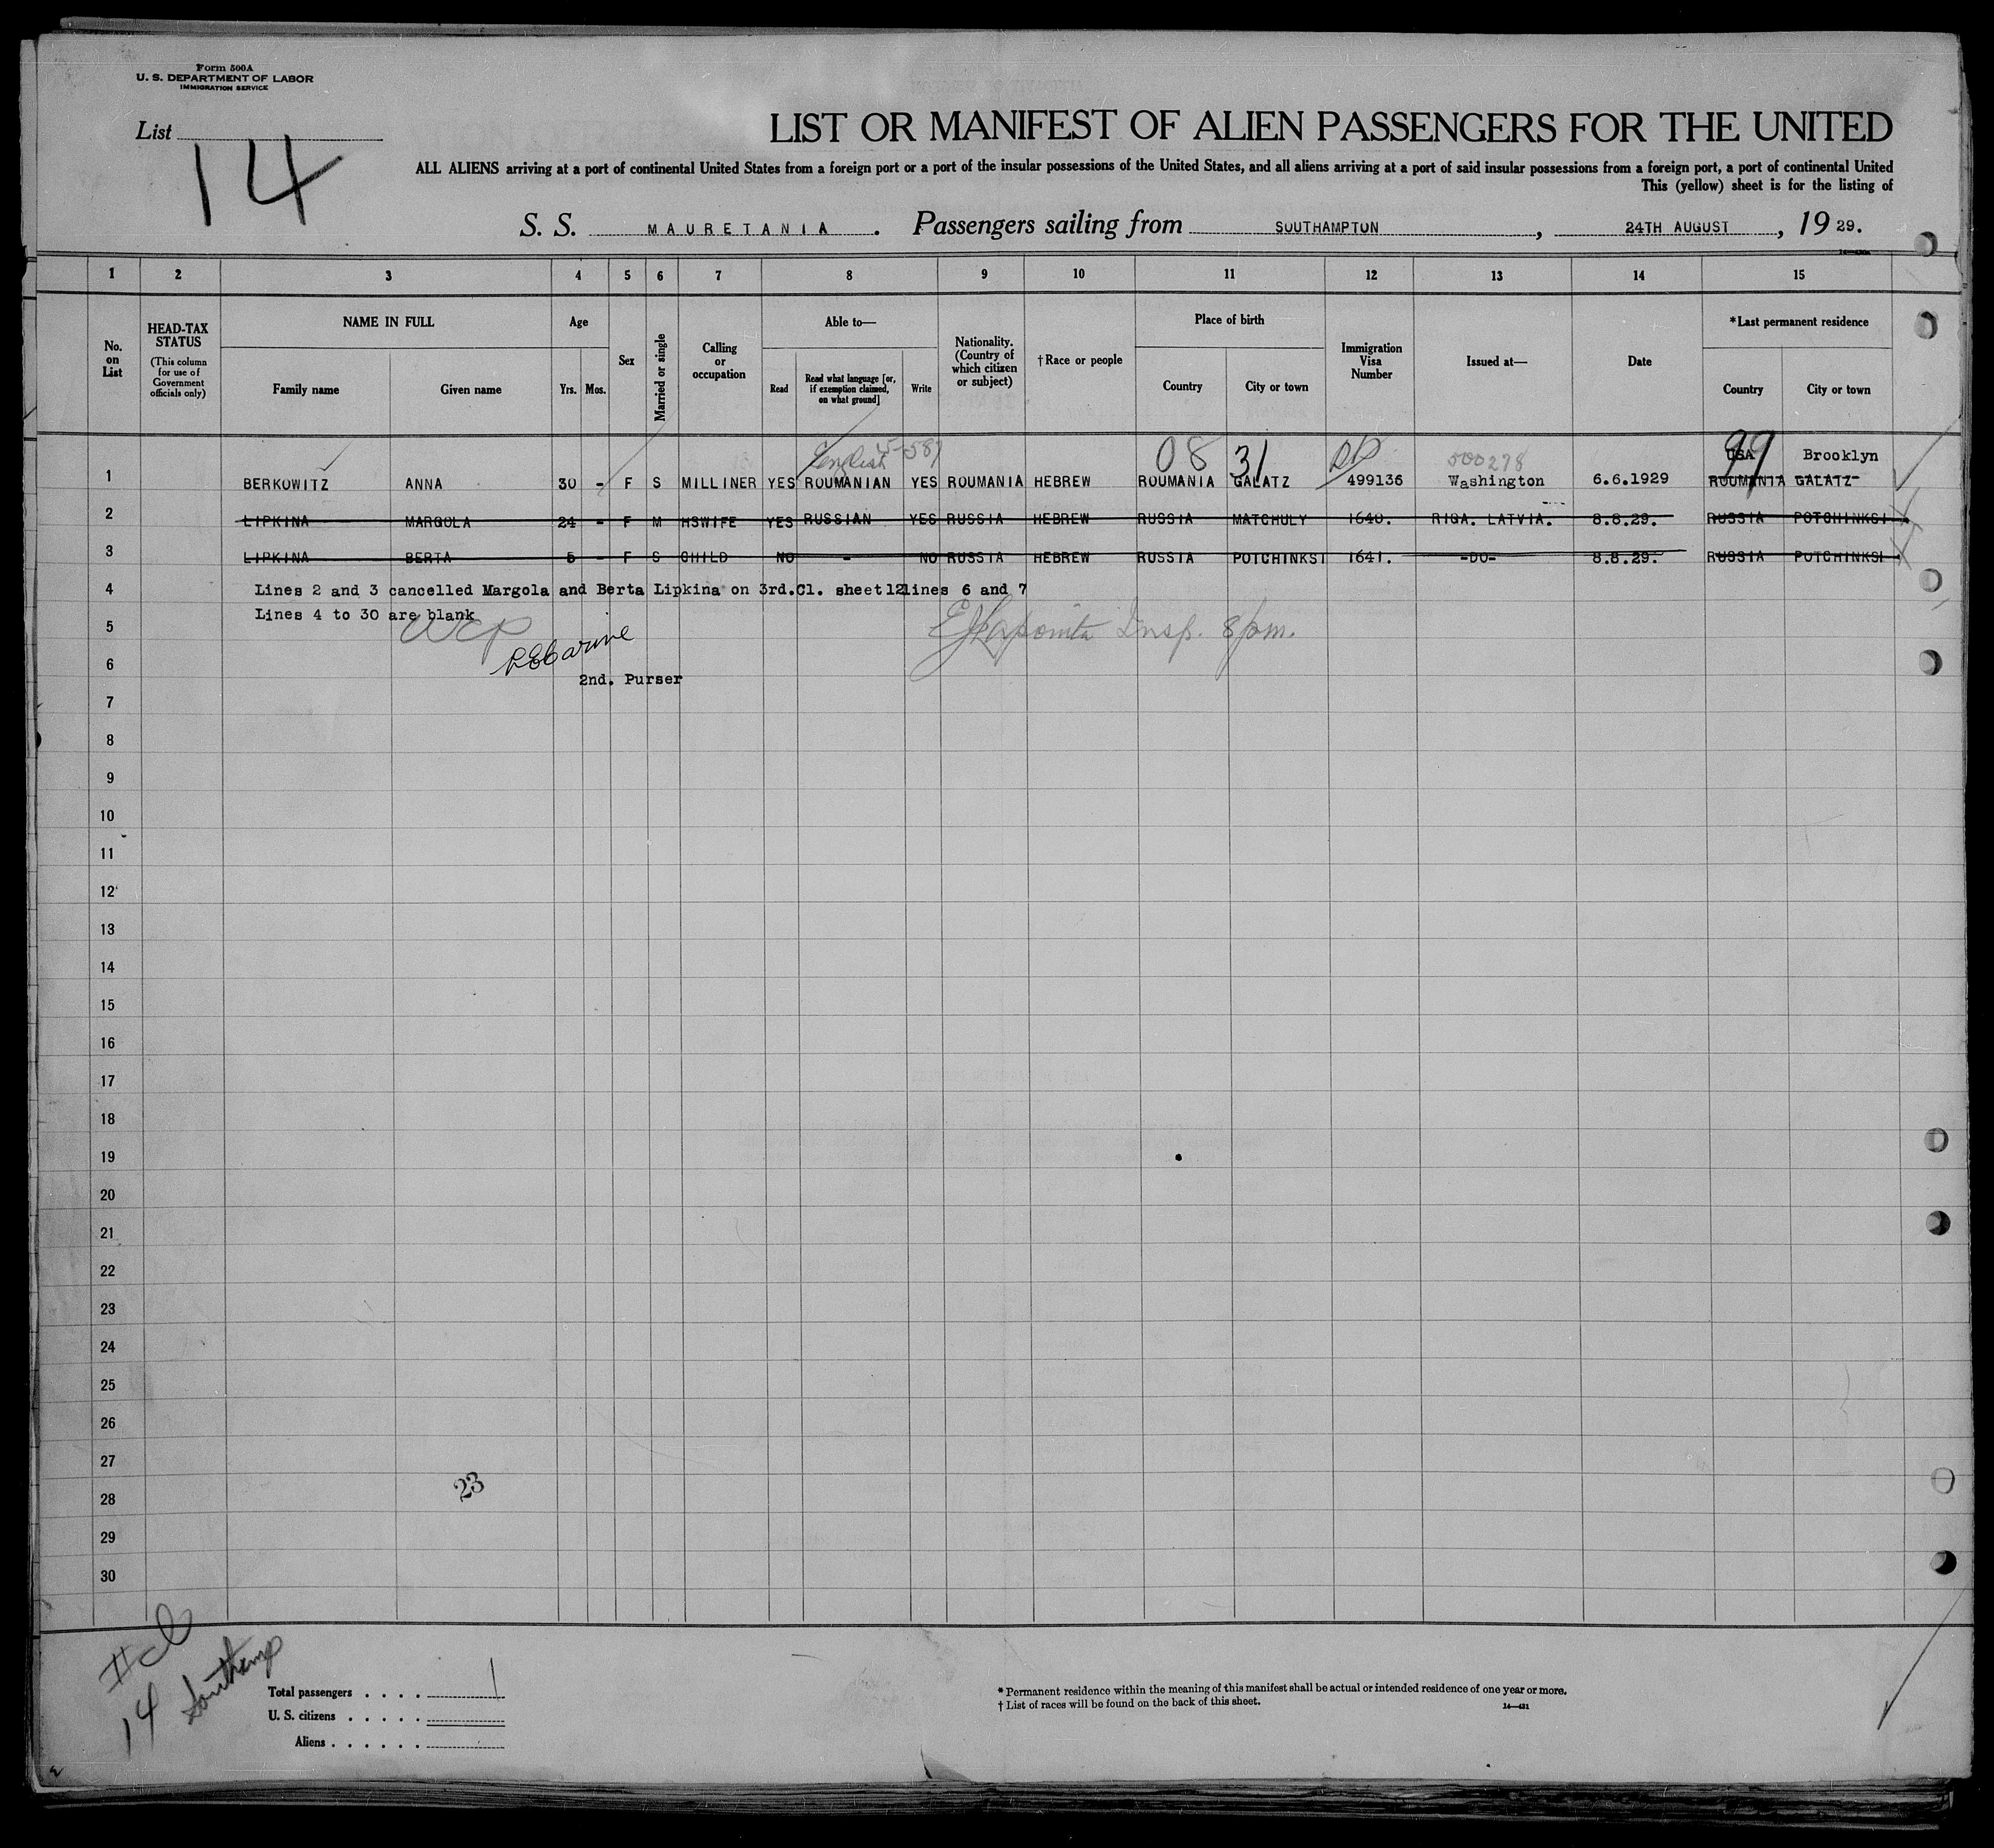 Form 500A
U. S. DEPARTMENT OF LABOR
IMMIGRATION SERVICE
List
14
LIST OR MANIFEST OF ALIEN PASSENGERS FOR THE UNITED
ALL ALIENS arriving at a port of continental United States from a foreign port or a port of the insular possessions of the United States, and all aliens arriving at a port of said insular possessions from a foreign port, a port of continental United
This (yellow) sheet is for the listing of
S. S. MAURETANIA . Passengers sailing from SOUTHAMPTON , 24TH AUGUST , 19 29.
1 2 3 4 5 6 7 8 9 10 11 12 13 14 15
No. on List
HEAD-TAX STATUS
(This column for use of Government officials only)
NAME IN FULL
Family name Given name
Age
Yrs. Mos.
Sex
Married or single
Calling or occupation
Able to—
Read
Read what language [or, if exemption claimed, on what ground]
Write
Nationality. (Country of which citizen or subject)
†Race or people
Place of birth
Country City or town
Immigration Visa Number
Issued at—
Date
*Last permanent residence
Country City or town
English 5-581 08 31 500278 99 USA Brooklyn
1 BERKOWITZ ANNA 30 - F S MILLINER YES ROUMANIAN YES ROUMANIA HEBREW ROUMANIA GALATZ 499136 Washington 6.6.1929 ROUMANIA GALATZ
2 LIPKINA MARGOLA 24 - F M HSWIFE YES RUSSIAN YES RUSSIA HEBREW RUSSIA MATCHULY 1640. RIGA. LATVIA. 8.8.29. RUSSIA POTCHINKSI
3 LIPKINA BERTA 5 - F S CHILD NO - NO RUSSIA HEBREW RUSSIA POTCHINKSI 1641. -DO- 8.8.29. RUSSIA POTCHINKSI
4 Lines 2 and 3 cancelled Margola and Berta Lipkina on 3rd.Cl. sheet12lines 6 and 7
Lines 4 to 30 are blank
5 Insp. 8pm.
6
2nd. Purser
7
8
9
10
11
12
13
14
15
16
17
18
19
20
21
22
23
24
25
26
27
23
28
29
30
II cl
14 Southamp
Total passengers . . . . 1
U. S. citizens . . . . .
Aliens . . . . . .
* Permanent residence within the meaning of this manifest shall be actual or intended residence of one year or more.
† List of races will be found on the back of this sheet.
14—421